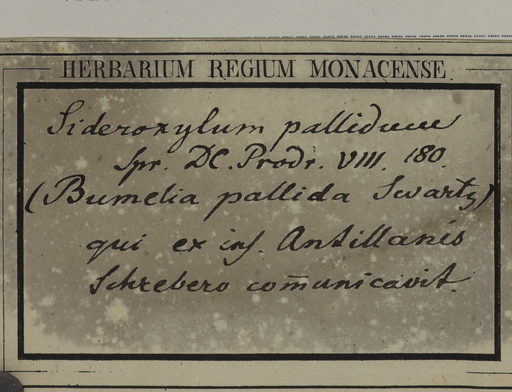 HERBARIUM REGIUM MONACENSE.
Sideroxylum pallidum
Spr. DC. Prodr. VIII. 180.
(Bumelia pallida Swartz)
qui ex ins. Antillanis
Schrebero com̄unicavit.